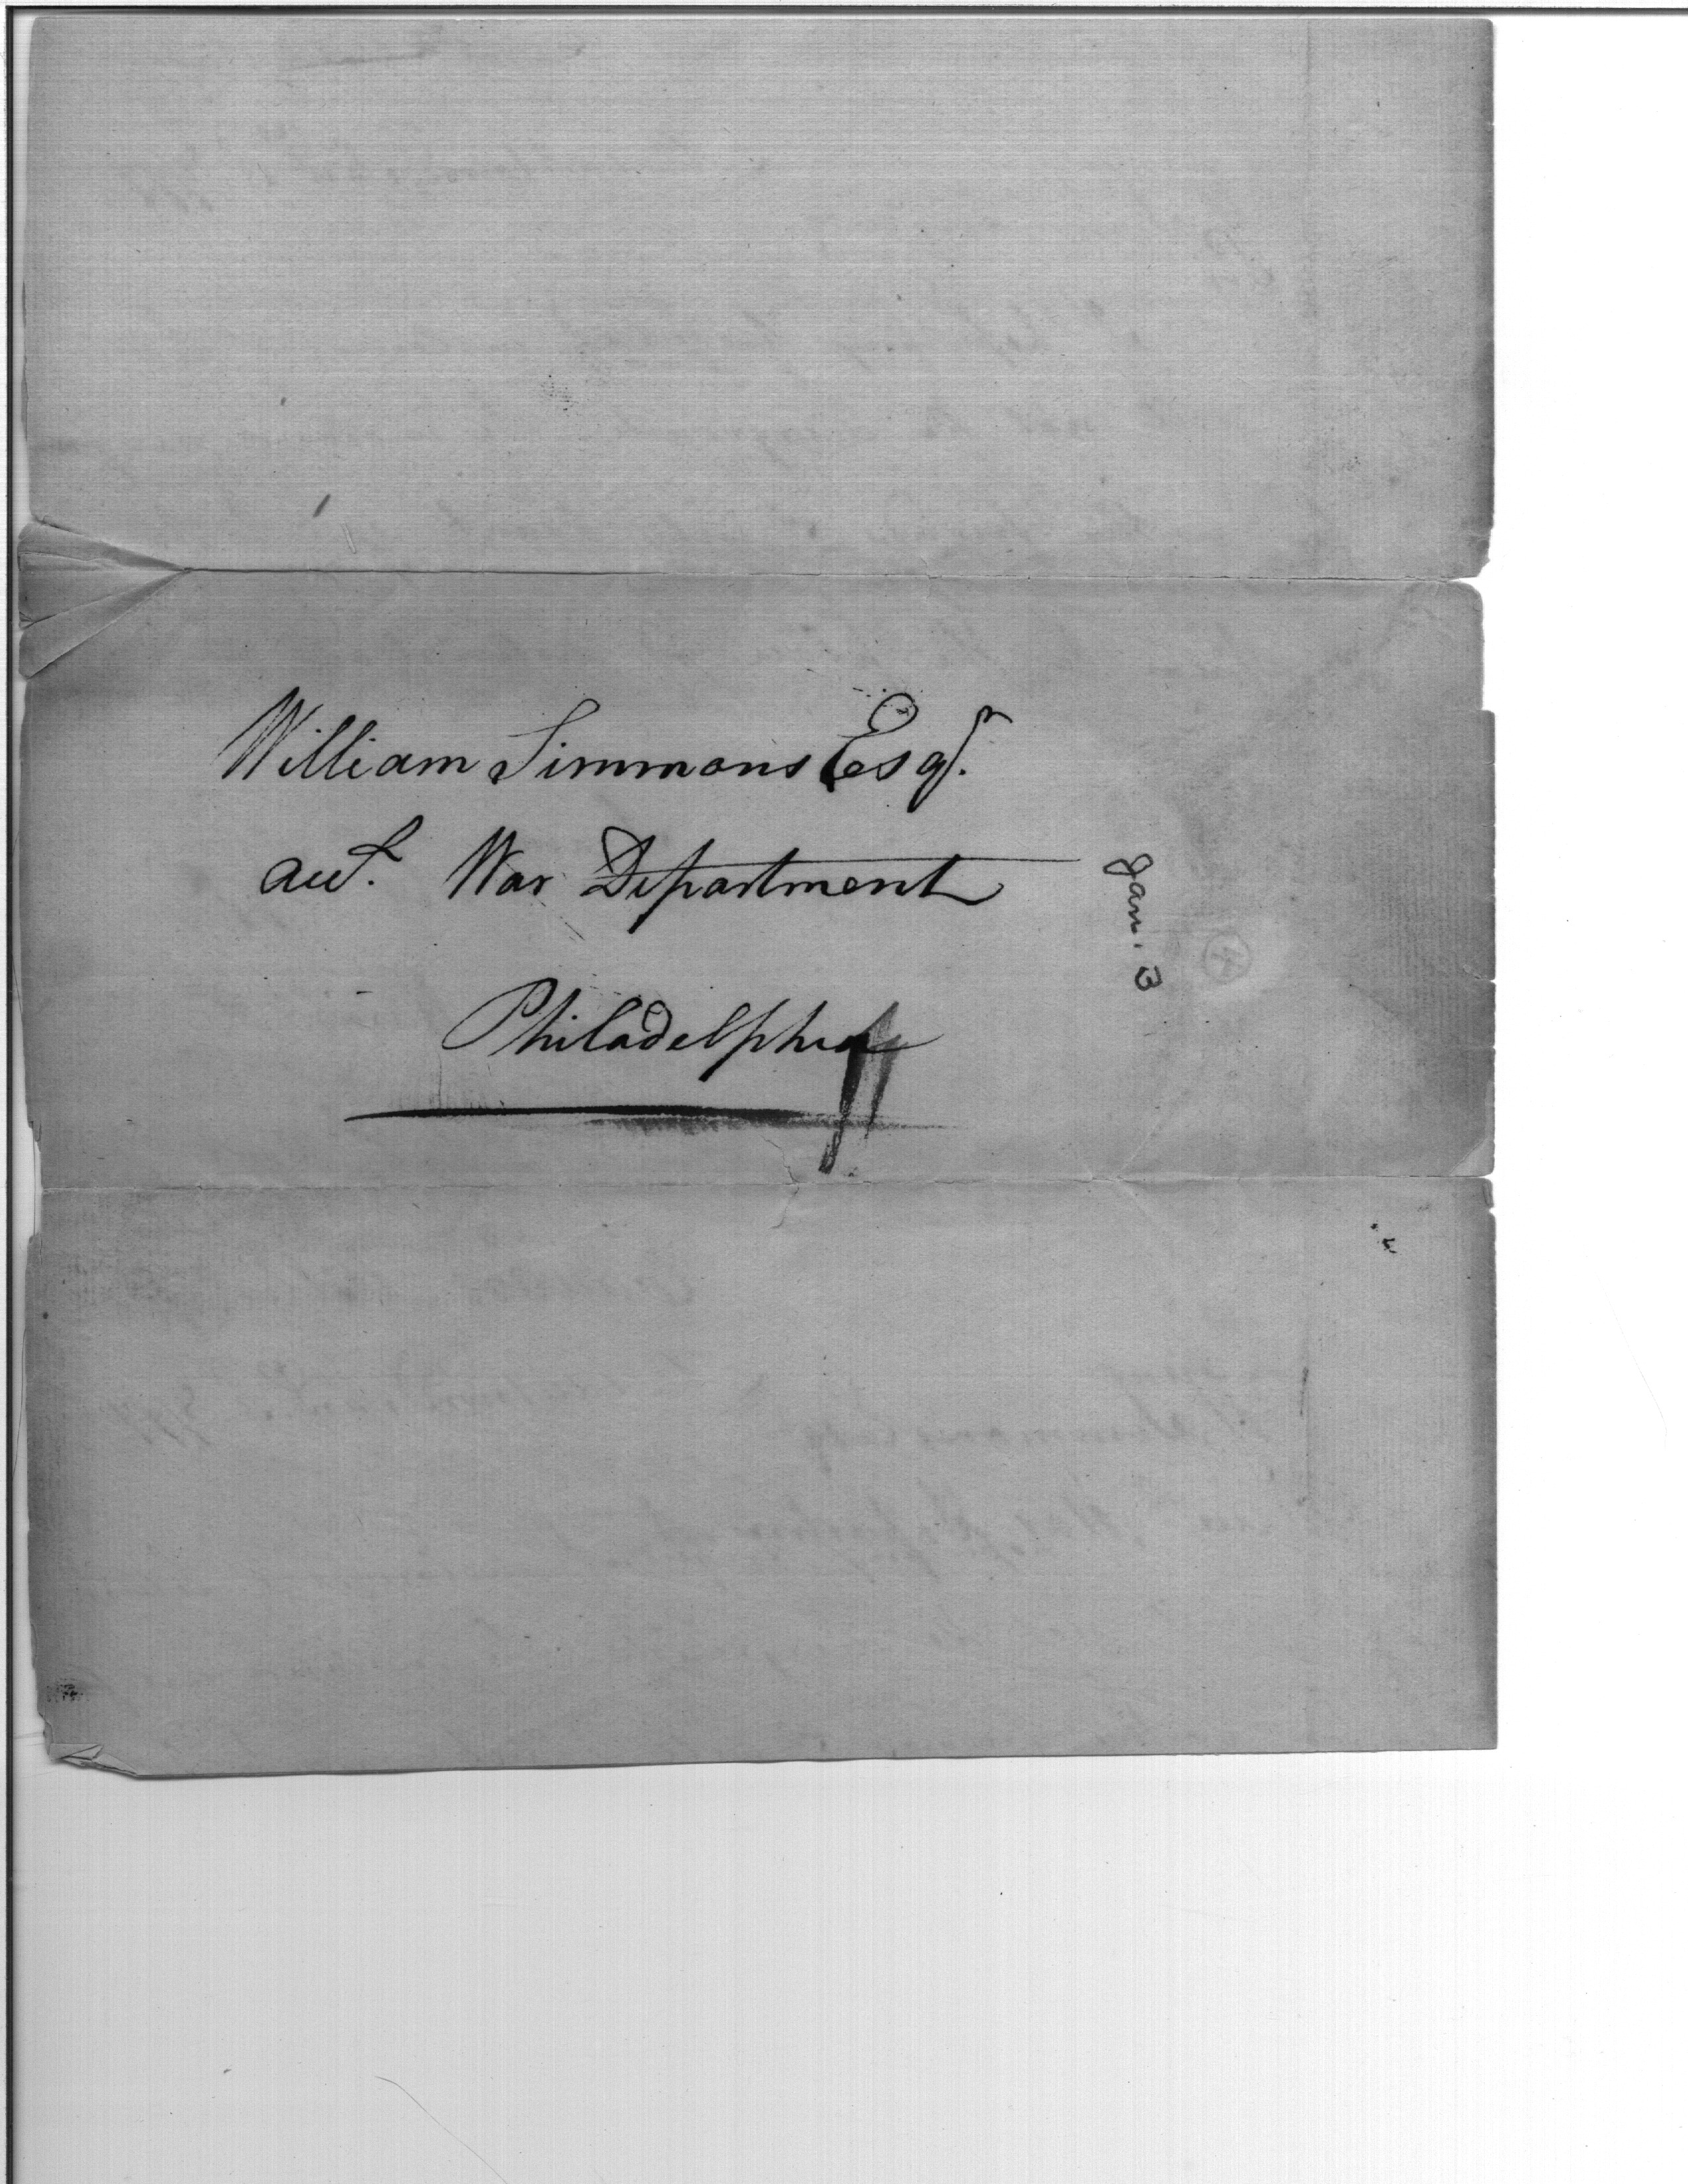 William Simmons Esqr.
acct. War Department
Philadelphia
Jan. 3